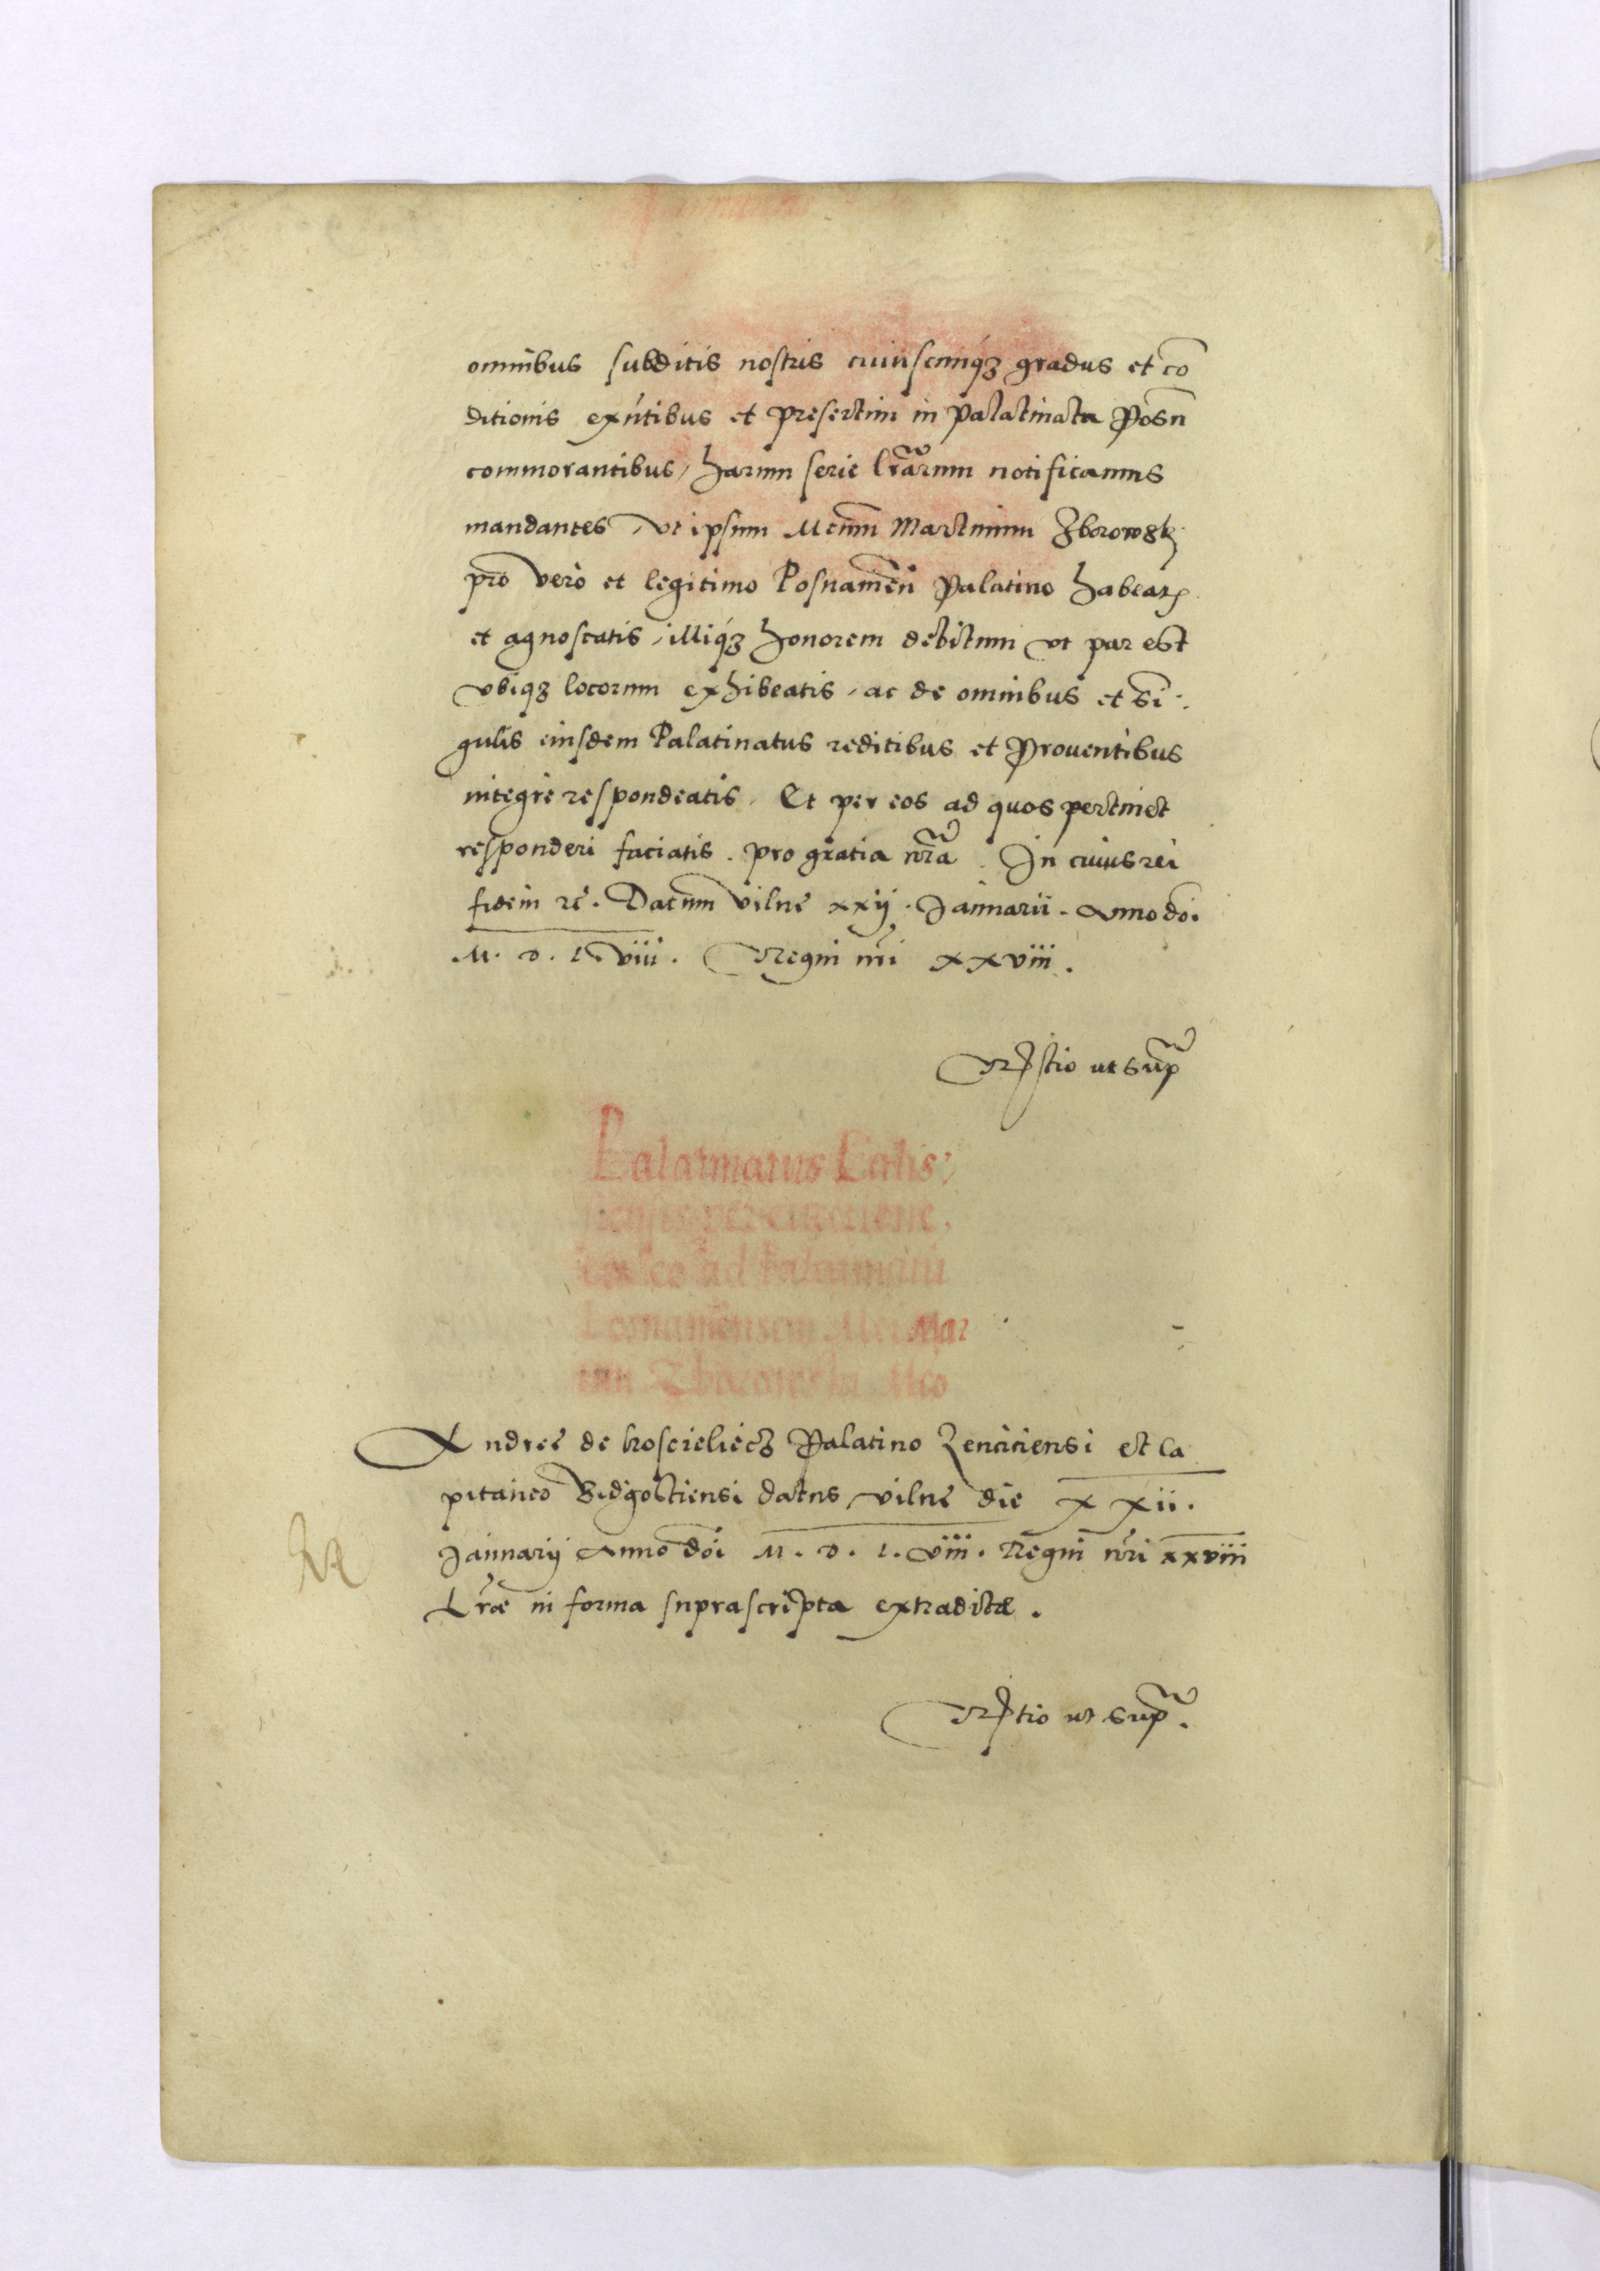 omnibus subditis nostris cuiuscunq3 gradus et co̅
ditionis exn̄tibus et presertim in Palatinatu Posn̄
commorantibus, harum serie lr̄arum notificamus
mandantes, vt ipsum Mcum̄ Martinum Zborowsk̨
pro vero et legitimo Posnamen̄ Palatino habeat̨
et agnoscatis, illiq3 honorem debitum vt par est
vbiq3 locorum exhibeatis, ac de omnibus et sī
gulis eiusdem Palatinatus reditibus et Prouentibus
integre respondeatis, Et per eos ad quos pertinet
responderi faciatis. pro gratia nr̄a. In cuius rei
fidem rē. Datum Vilne xxij. Januarii. Anno doī.
M. D. L. viii. Regni nr̄i xxviii.
Rstio ut sup̄
Palatinatus Calis,
siensis per
ad Palatinatum
Posnaniensem Mci Mar
tini Zborowski Mco
Andree de koscieliec3 Palatino Lenciciensi et Ca
pitaneo Bidgostiensi datus Vilne die xxii.
Januarij Anno doī M. D. L. viii. Regni nr̄i xxviii
Lr̄æ in forma suprascripta extraditæ.
Rstio ut sup̄.